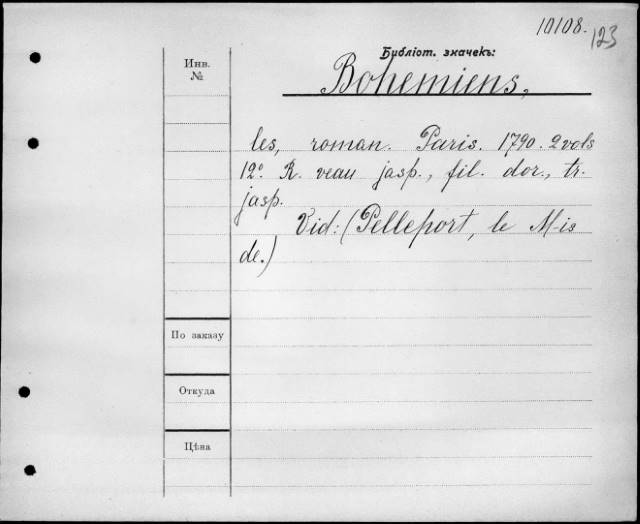 10108.
123
Библіот. значекъ:
Инв.
№
Bohemiens,
les, roman. Paris. 1790. 2 vols
12º R. veau jasp., fil. dor., tr.
jasp.
Vid: (Pelleport, le M-is
de.)
По заказу
Откуда
Цѣна